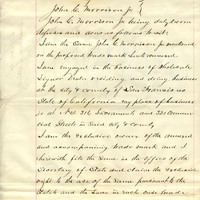 John C. Morrison Jr
John C. Morrison Jr being duly sworn
deposes and says as follows to wit:
I am the same John C. Morrison Jr mentioned
in the proposed trade mark
I am engaged in the business of Wholesale
Liquor residing and doing business
in the city & county of San Francisco
State of California my place of business
is at No 216 Sacramento and 321 Commer-
cial Street in said city & county
I am the exclusive owner of the annexed
and accompanying trade mark and I
herewith file the same in the office of the
Secretary of State and claim the exclusive
right to the use of the same pursuant to the
Statute and the laws in such case made